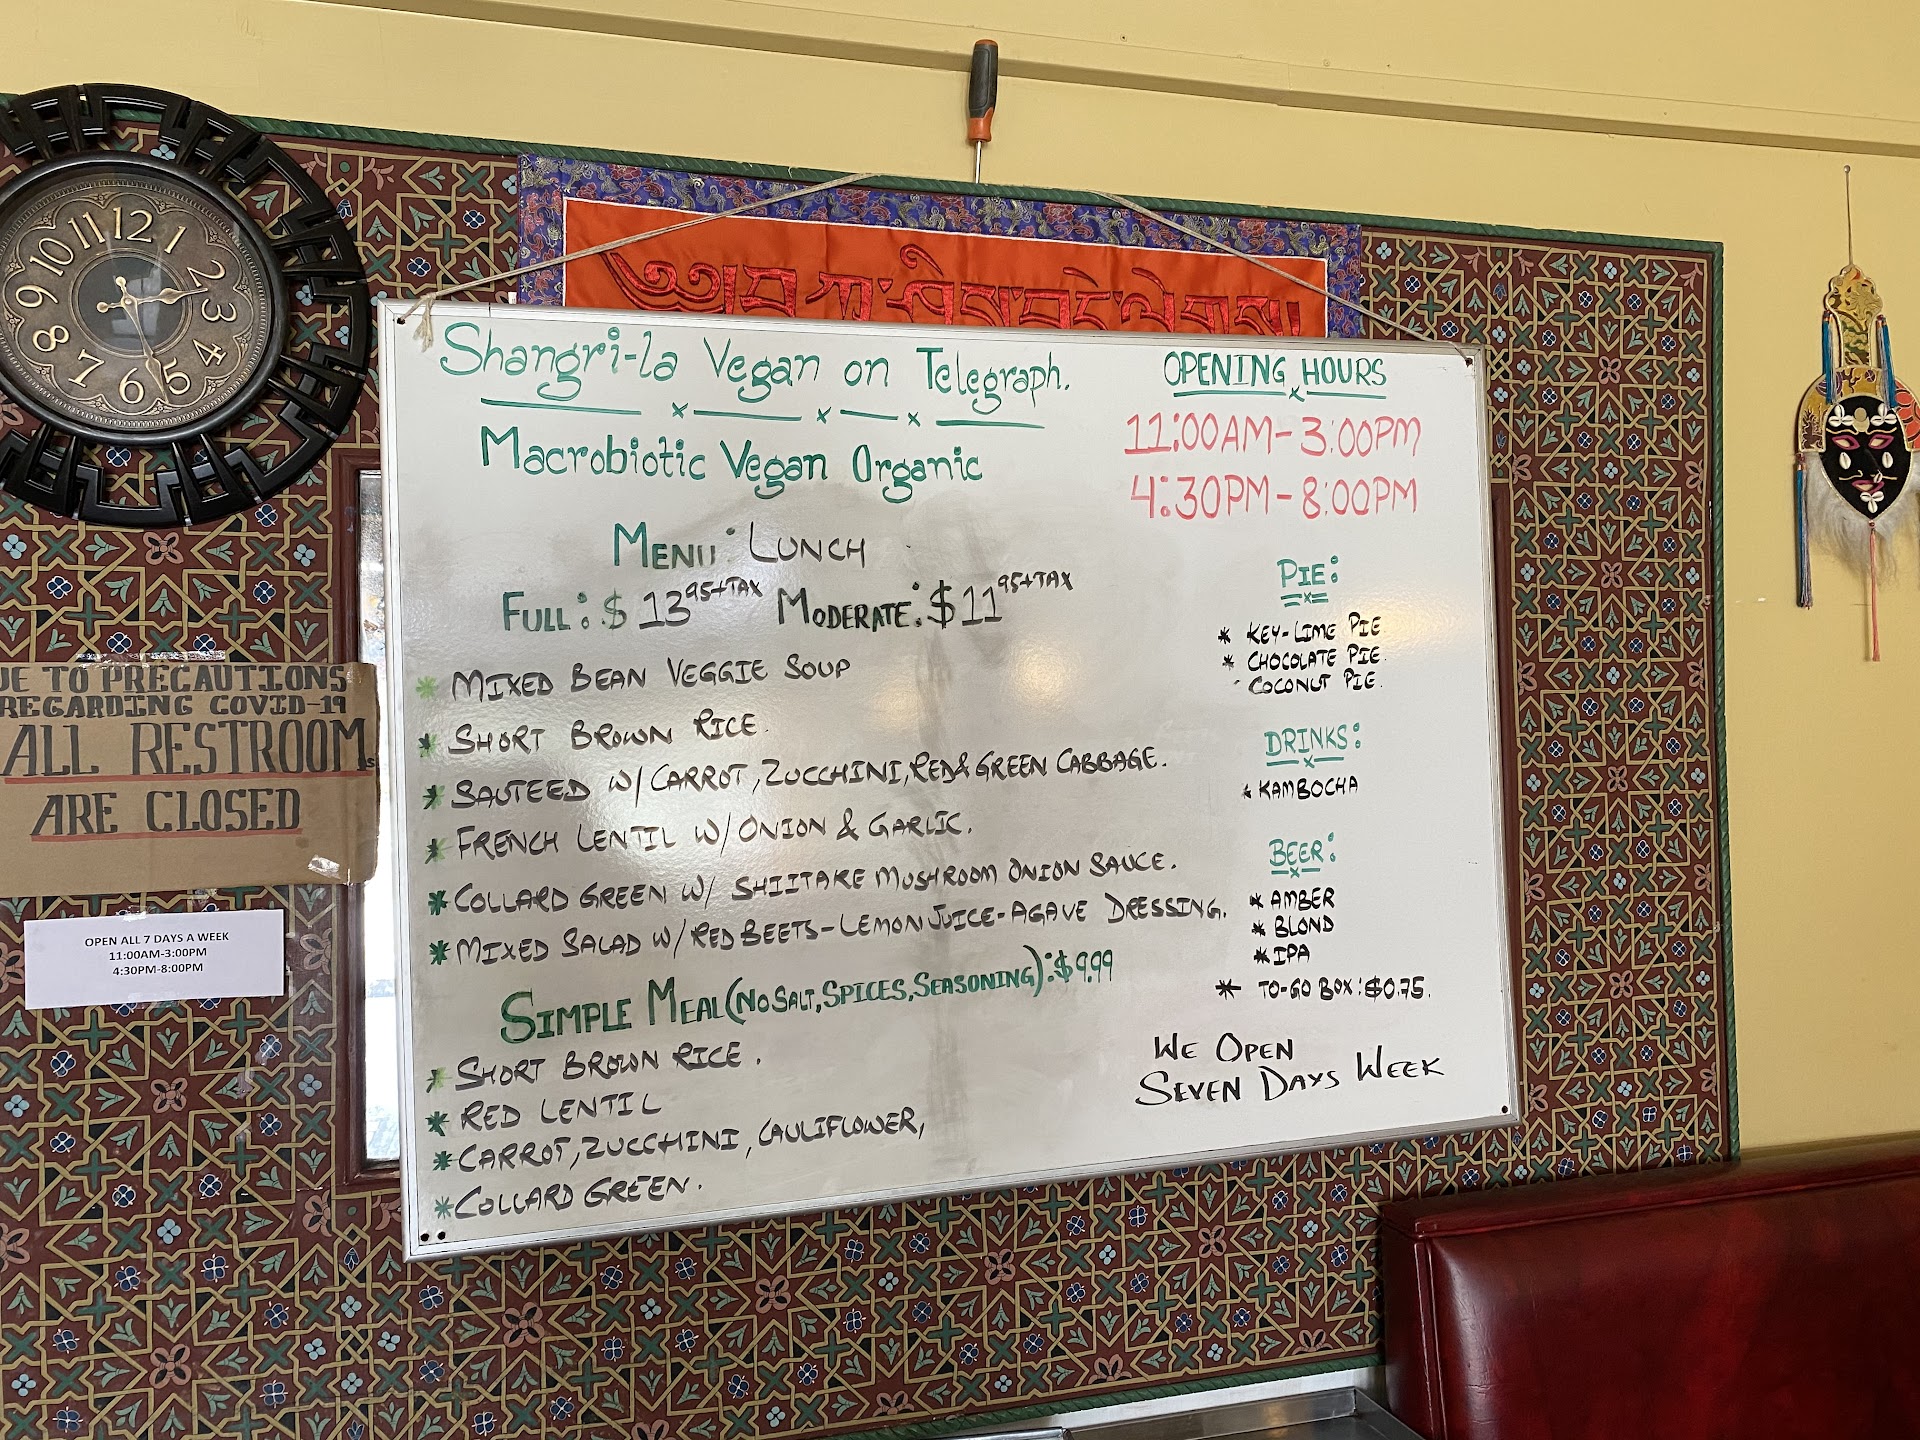 12
1
2
3
4
5
6
7
8
9
10
11
Shangri-la Vegan on Telegraph.
Macrobiotic Vegan Organic
MENU: LUNCH
FULL: $13 95+TAX MODERATE: $11 95+TAX
* MIXED BEAN VEGGIE SOUP
* SHORT BROWN RICE.
* SAUTEED W/ CARROT, ZUCCHINI, RED & GREEN CABBAGE.
* FRENCH LENTIL W/ ONION & GARLIC.
* COLLARD GREEN W/ SHIITAKE MUSHROOM ONION SAUCE.
* MIXED SALAD W/ RED BEETS-LEMON JUICE-AGAVE DRESSING.
SIMPLE MEAL (NO SALT, SPICES, SEASONING): $9.99
* SHORT BROWN RICE.
* RED LENTIL
* CARROT, ZUCCHINI, CAULIFLOWER,
* COLLARD GREEN.
OPENING HOURS
11:00AM-3:00PM
4:30PM-8:00PM
PIE:
* KEY-LIME PIE
* CHOCOLATE PIE.
COCONUT PIE.
DRINKS:
* KAMBOCHA
BEER:
* AMBER
* BLOND
* IPA
* TO-GO BOX: $0.75.
WE OPEN
SEVEN DAYS WEEK
UE TO PRECAUTIONS
REGARDING COVID-19
ALL RESTROOMs
ARE CLOSED
OPEN ALL 7 DAYS A WEEK
11:00AM-3:00PM
4:30PM-8:00PM